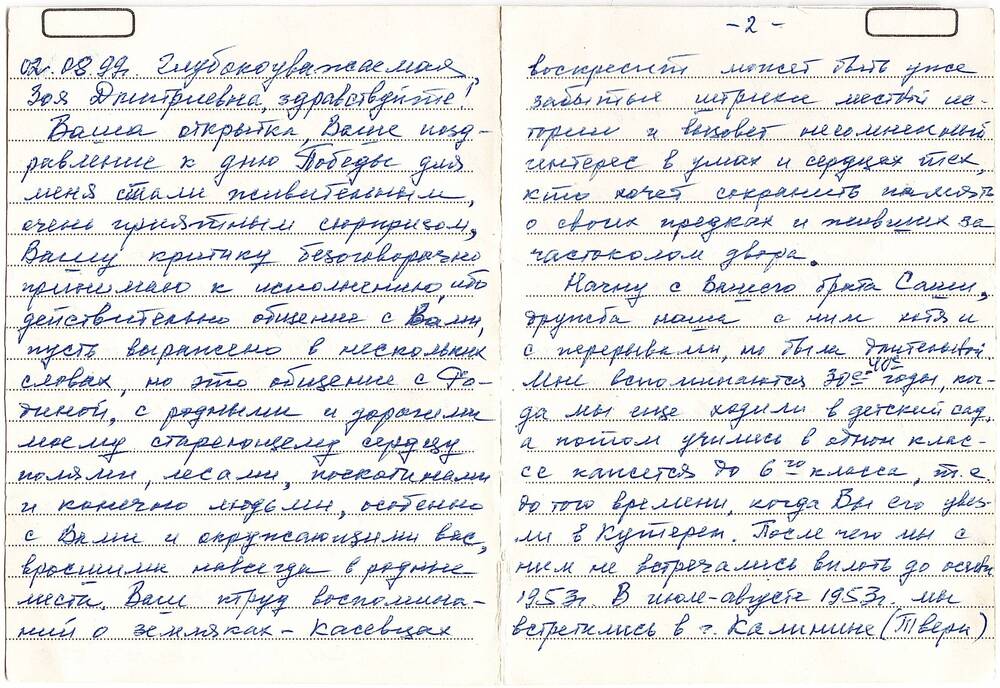 02.08.99г. Глубокоуважаемая
Зоя Дмитриевна, здравствуйте!
Ваша открытка, Ваше позд-
равление к дню Победы для
меня стали живительным,
очень приятным сюрпризом,
Вашу критику безоговорочно
принимаю к исполнению, ибо
действительно общение с Вами,
пусть выражено в нескольких
словах, но это общение с Ро-
диной, с родными и дорогими
моему стареющему сердцу
полями, лесами, поскотинами
и конечно людьми, особенно
с Вами и окружающими вас,
вросшими навсегда в родные
места. Ваш труд воспомина-
ний о земляках - Касевцах
- 2 -
воскресит может быть уже
забытые штрихи местной ис-
тории и вызовет несомненный
интерес в умах и сердцах тех,
кто хочет сохранить память
о своих предках и живших за
частоколом двора.
Начну с Вашего брата Саши,
дружба наша с ним хотя и
с перерывами, но была длительной
Мне вспоминаются 30е-40е годы, ког-
да мы еще ходили в детский сад,
а потом учились в одном клас-
се кажется до 6го класса, т.е.
до того времени, когда Вы его увез-
ли в Кутерем. После чего мы с
ним не встречались вплоть до осени
1953г. В июле-августе 1953г. мы
встретились в г. Калинине (Твери)